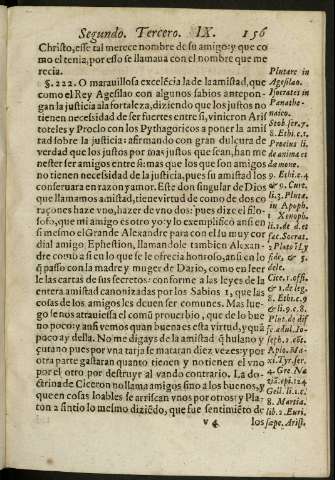 Segundo. Tercero. IX. 156
Christo, esse tal merece nombre de su amigo: y que co
mo el tenia, por esso se llamaua con el nombre que me
recia.
§. 222. O marauillosa excelẽcia la de la amistad, que
como el Rey Agesilao con algunos sabios antepon-
gan la justicia a la fortaleza, diziendo que los justos no
tienen necessidad de ser fuertes entre si, vinieron Aris
toteles y Proclo con los Pythagoricos a poner la amis
tad sobre la justicia: afirmando con gran dulçura de
verdad que los justos por mas justos que sean, han me
nester ser amigos entre si: mas que los que son amigos
no tienen necessidad de la justicia, pues su amistad los
conseruara en razon y amor. Este don singular de Dios
que llamamos amistad, tiene virtud de como de dos co
raçones haze vno, hazer de vno dos: pues dize el filo-
sofo, que mi amigo es otro yo: y lo exemplificò ansi en
si mesmo el Grande Alexandre para con el su muy cor
dial amigo Ephestion, llamandole tambien Alexan-
dre como a si en lo que se le ofrecia honroso, ansi en lo
q̃ passò con la madre y muger de Dario, como en leer
le las cartas de sus secretos: conforme a las leyes de la
entera amistad canonizadas por los Sabios 1, que las
cosas de los amigos lcdeuen ser comunes. Mas lue-
go se nos atrauiessa el comũ prouerbio, que de lo bue
no poco: y ansi vemos quan buena es esta virtud, y quã
poco ay della. No me digays de la amistad q̃ hulano y
çutano pues por vna tarja se mataran diez vezes: y por
otra parte gastaran quanto tienen y no tienen el vno
por el otro por destruyr al vando contrario. La do-
ctrina de Ciceron no llama amigos sino a los buenos, y
que en cosas loables se arriscan vnos por otros: y Pla-
ton a sintio lo mesmo diziẽdo, que fue sentimiẽto de
V 4 los
Plutarc in
Agesilao.
Isocrates in
Panathe-
naico.
Stob. ser. 7.
8. Ethi. c. 1.
Proclus li.
de anima et
dæmone.
9. Ethi. c. 4
&
li. 3. Pluta.
in Apoph.
Xenoph.
li. 1. de d. et
fac. Socrat.
fide,
Cice. 1. offi.
& 1. de leg.
8. Ethi. c. 9
& li. 9. c. 8.
Plut. de dif
Tyr. ser.
4. Gre. Na
ziã. epi. 124
Gell. li. 1. c.
8. Martia.
lib. 2. Euri.
sæpe. Arist.